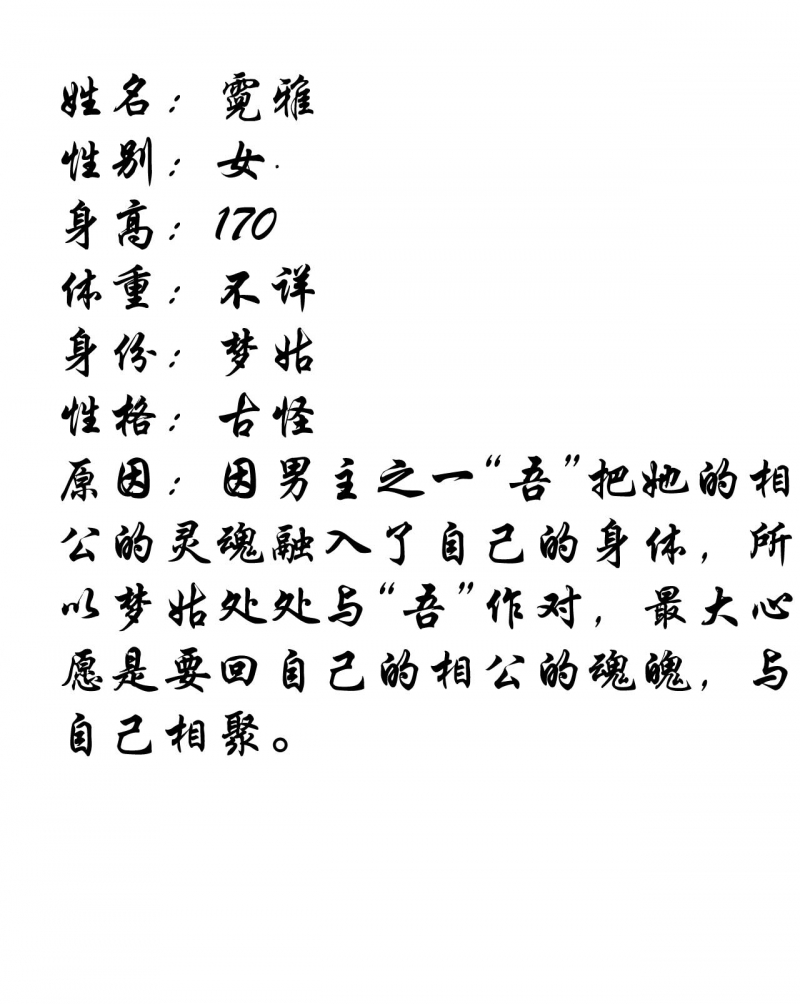 姓名：霓雅
性别：女
身高：170
体重：不详
身份：梦姑
性格：古怪
原因：因男主之一“吾”把她的相
公的灵魂融入了自己的身体，所
以梦姑处处与“吾”作对，最大心
愿是要回自己的相公的魂魄，与
自己相聚。